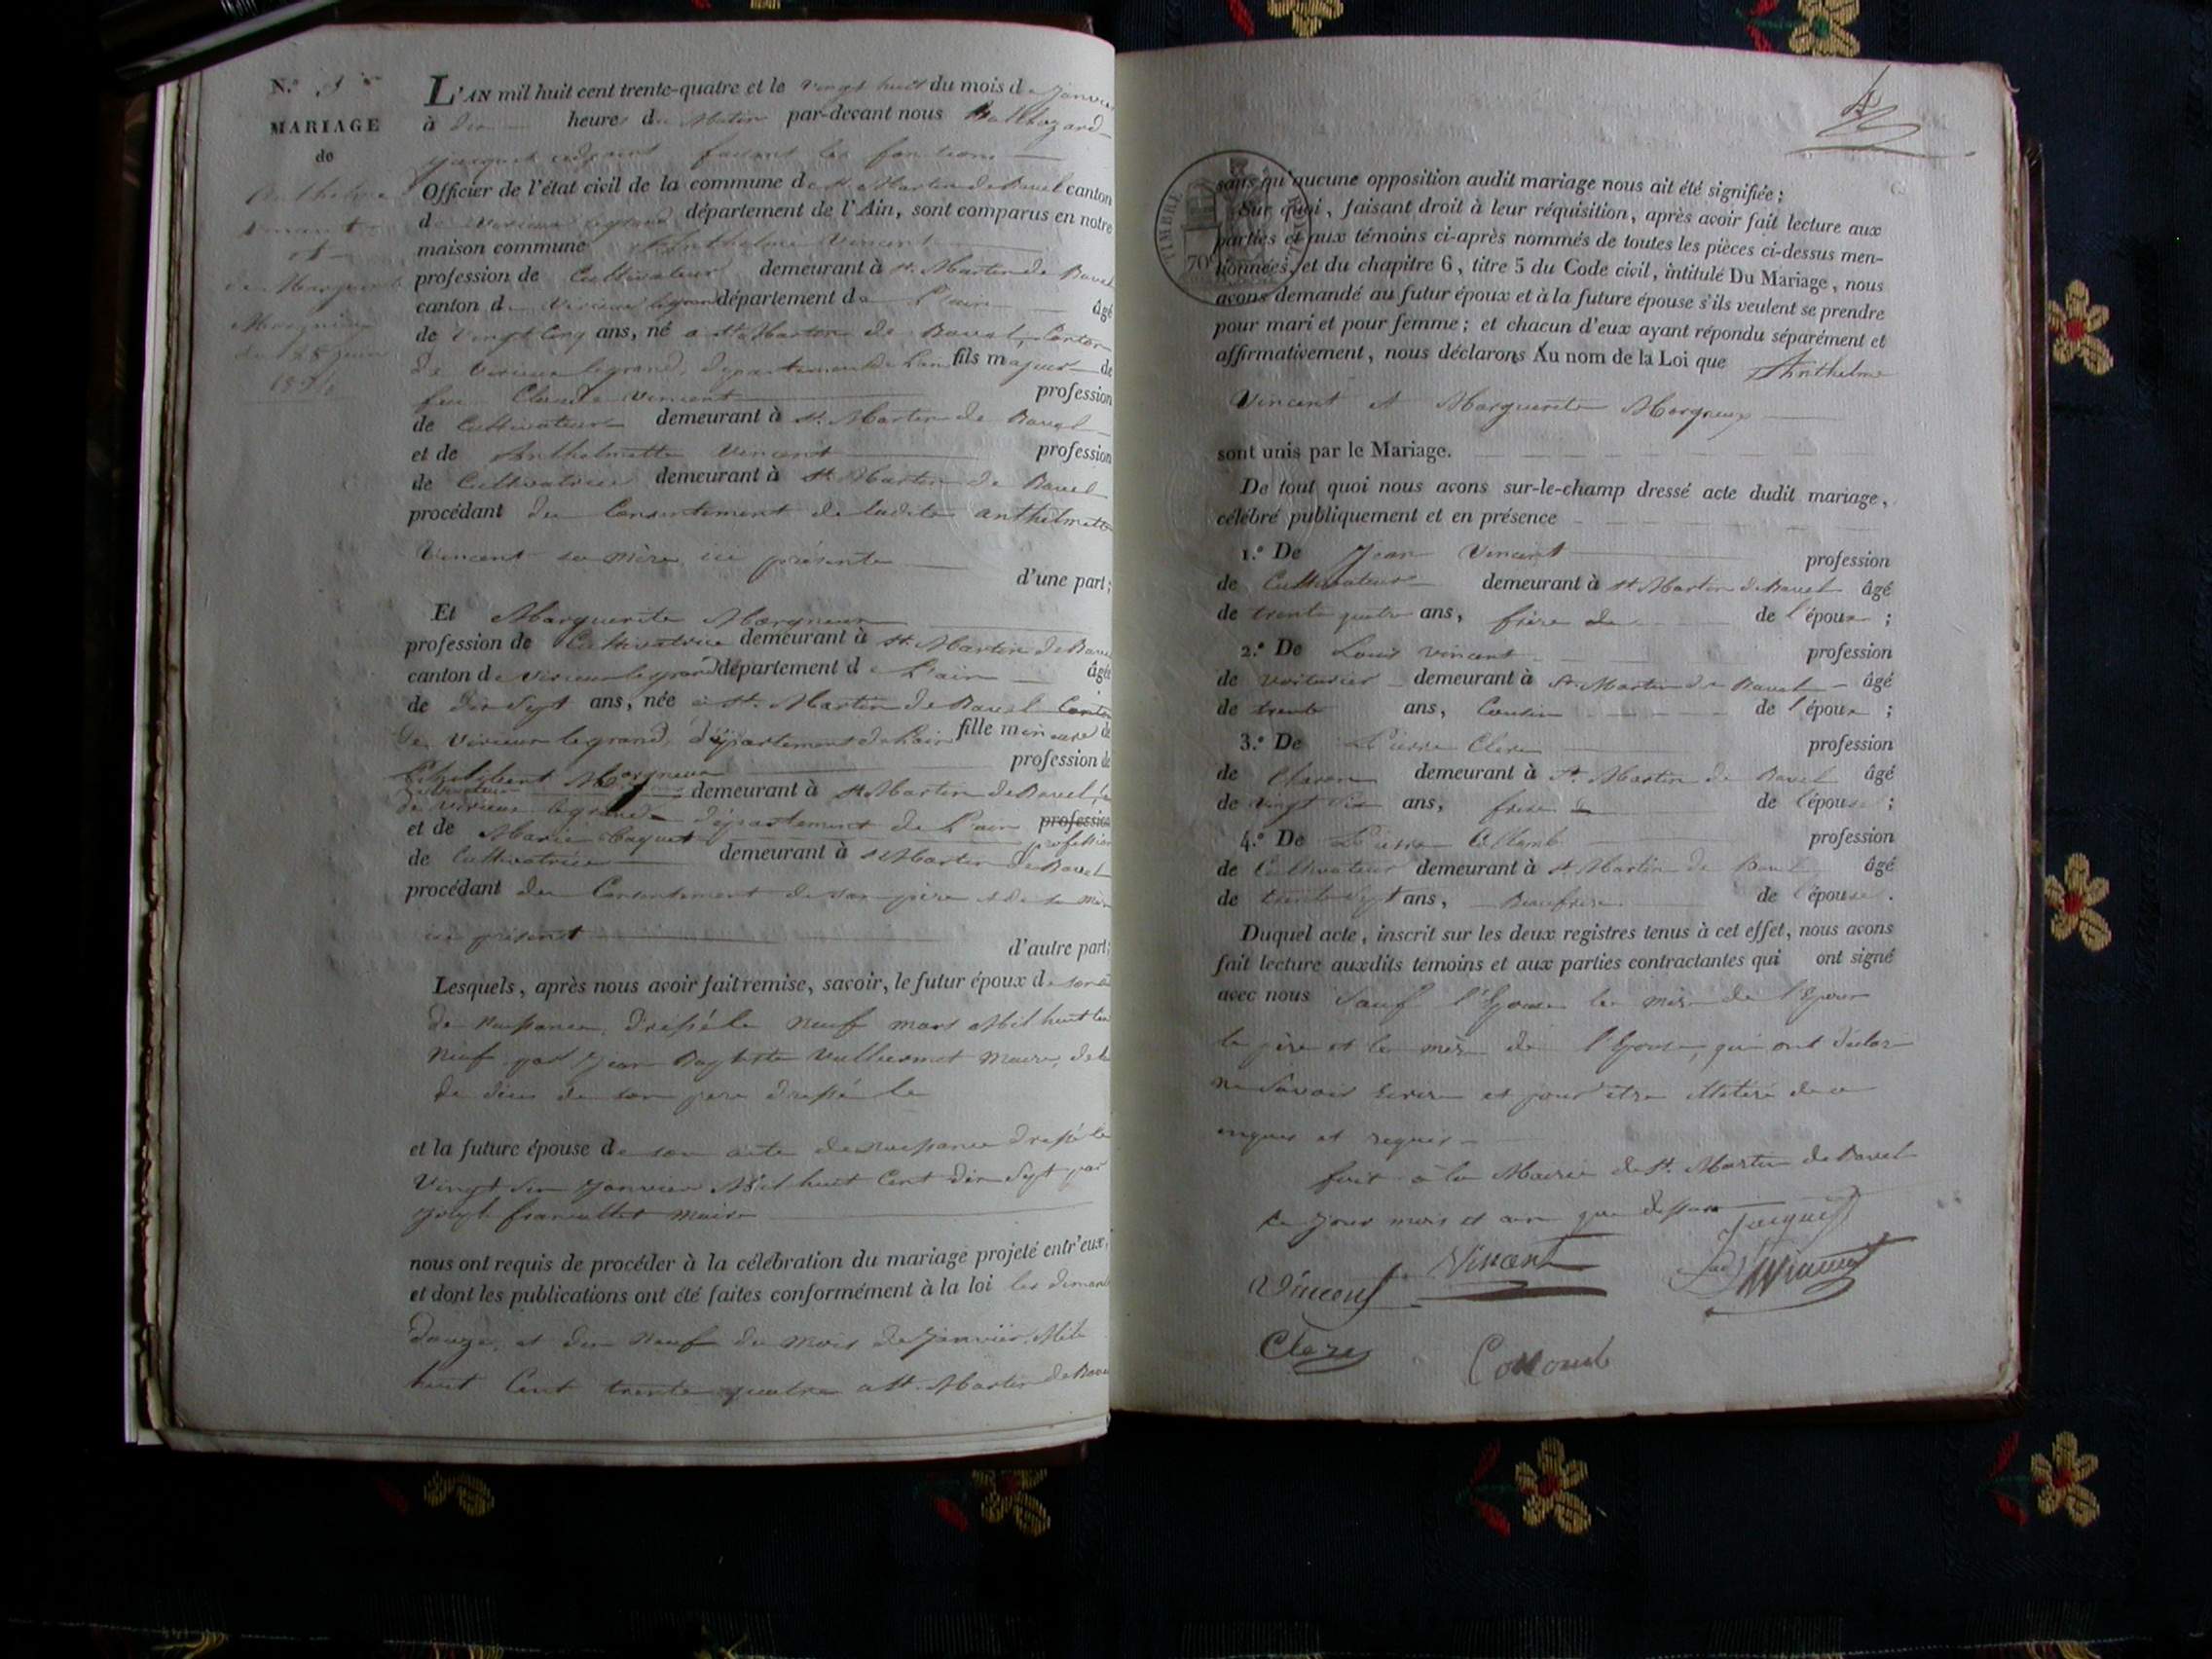 N.º
MARIAGE
de
Anthelme
Vincent
et
de Marguerite
Morgneux
du 28 janv
1834
L'AN mil huit cent trente-quatre et le vingt huit du mois de janvier
à dix heures du Matin par-devant nous Balthazard
Jacquet adjoint faisant les fonctions
Officier de l'état civil de la commune de St. Martin de Bavel canton
de Virieux legrand département de l'Ain, sont comparus en notre
maison commune Anthelme Vincent
profession de Cultivateur demeurant à St. Martin de Bavel
canton de Virieux legrand département de L'ain âgé
de vingt Cinq ans, né a St. Martin de Bavel, Canton
de Virieux legrand, département de L'ain fils majeur de
feu Claude Vincent profession
de Cultivateur demeurant à St. Martin de Bavel
et de Anthelmette Vincent profession
de Cultivatrice demeurant à St Martin de Bavel
procédant du Consentement de ladite anthelmette
Vincent sa mère ici présente
d'une part;
Et Marguerite Morgneux
profession de Cultivatrice demeurant à St. Martin de Bavel
canton de Virieux legrand département de L'ain âgée
de dix Sept ans, née à St. Martin de Bavel Canton
de Virieux legrand, département de L'ain fille mineure de
Philibert Morgneux profession de
Cultivateur demeurant à St Martin de Bavel,
de Virieux legrand département de L'ain profession
et de Marie Baquet profession
de Cultivatrice demeurant à St Martin de Bavel
procédant du Consentement de son père et de sa mère
ici présent
d'autre part;
Lesquels, après nous avoir fait remise, savoir, le futur époux de son
de naissance, dressé le neuf mars Mil huit cent
neuf par Jean Baptiste Vulliermet Maire, de
de de son pere dressé le
et la future épouse de son acte de naissance dressé le
Vingt Six Janvier Mil huit Cent dix Sept par
Joseph maire
nous ont requis de procéder à la célébration du mariage projeté entr'eux,
et dont les publications ont été faites conformément à la loi les dimanches
douze, et dix neuf du mois de Janvier, Mile
huit Cent trente quatre a St. Martin de Bavel
TIMBRE ROYAL
70
sans qu'aucune opposition audit mariage nous ait été signifiée;
Sur quoi, faisant droit à leur réquisition, après avoir fait lecture aux
parties et aux témoins ci-après nommés de toutes les pièces ci-dessus men-
tionnées, et du chapitre 6, titre 5 du Code civil, intitulé Du Mariage, nous
avons demandé au futur époux et à la future épouse s'ils veulent se prendre
pour mari et pour femme; et chacun d'eux ayant répondu séparément et
affirmativement, nous déclarons Au nom de la Loi que Anthelme
Vincent et Marguerite Morgneux
sont unis par le Mariage.
De tout quoi nous avons sur-le-champ dressé acte dudit mariage,
célébré publiquement et en présence
1.º De Jean Vincent profession
de Cultivateur demeurant à St Martin de Bavel âgé
de trente quatre ans, frère de de l'époux;
2.º De Louis Vincent profession
de voiturier demeurant à St Martin de Bavel âgé
de trente ans, Cousin de l'époux;
3.º De Pierre Clerc profession
de Charon demeurant à St. Martin de Bavel âgé
de vingt Six ans, frere de l'épouse;
4.º De Pierre Collomb profession
de Cultivateur demeurant à St. Martin de Bavel âgé
de trente Sept ans, Beaufrere de l'épouse.
Duquel acte, inscrit sur les deux registres tenus à cet effet, nous avons
fait lecture auxdits témoins et aux parties contractantes qui ont signé
avec nous Sauf l'Epouse la mère de l'Epoux
le père et la mère de l'Epouse, qui ont déclaré
ne Savoir Ecrire et pour être de ce
enquis et requis
fait à la Mairie de St. Martin de Bavel
les jour mois et an que dessus
Jacquet
Vincent
Vincent
Clerc
Collomb